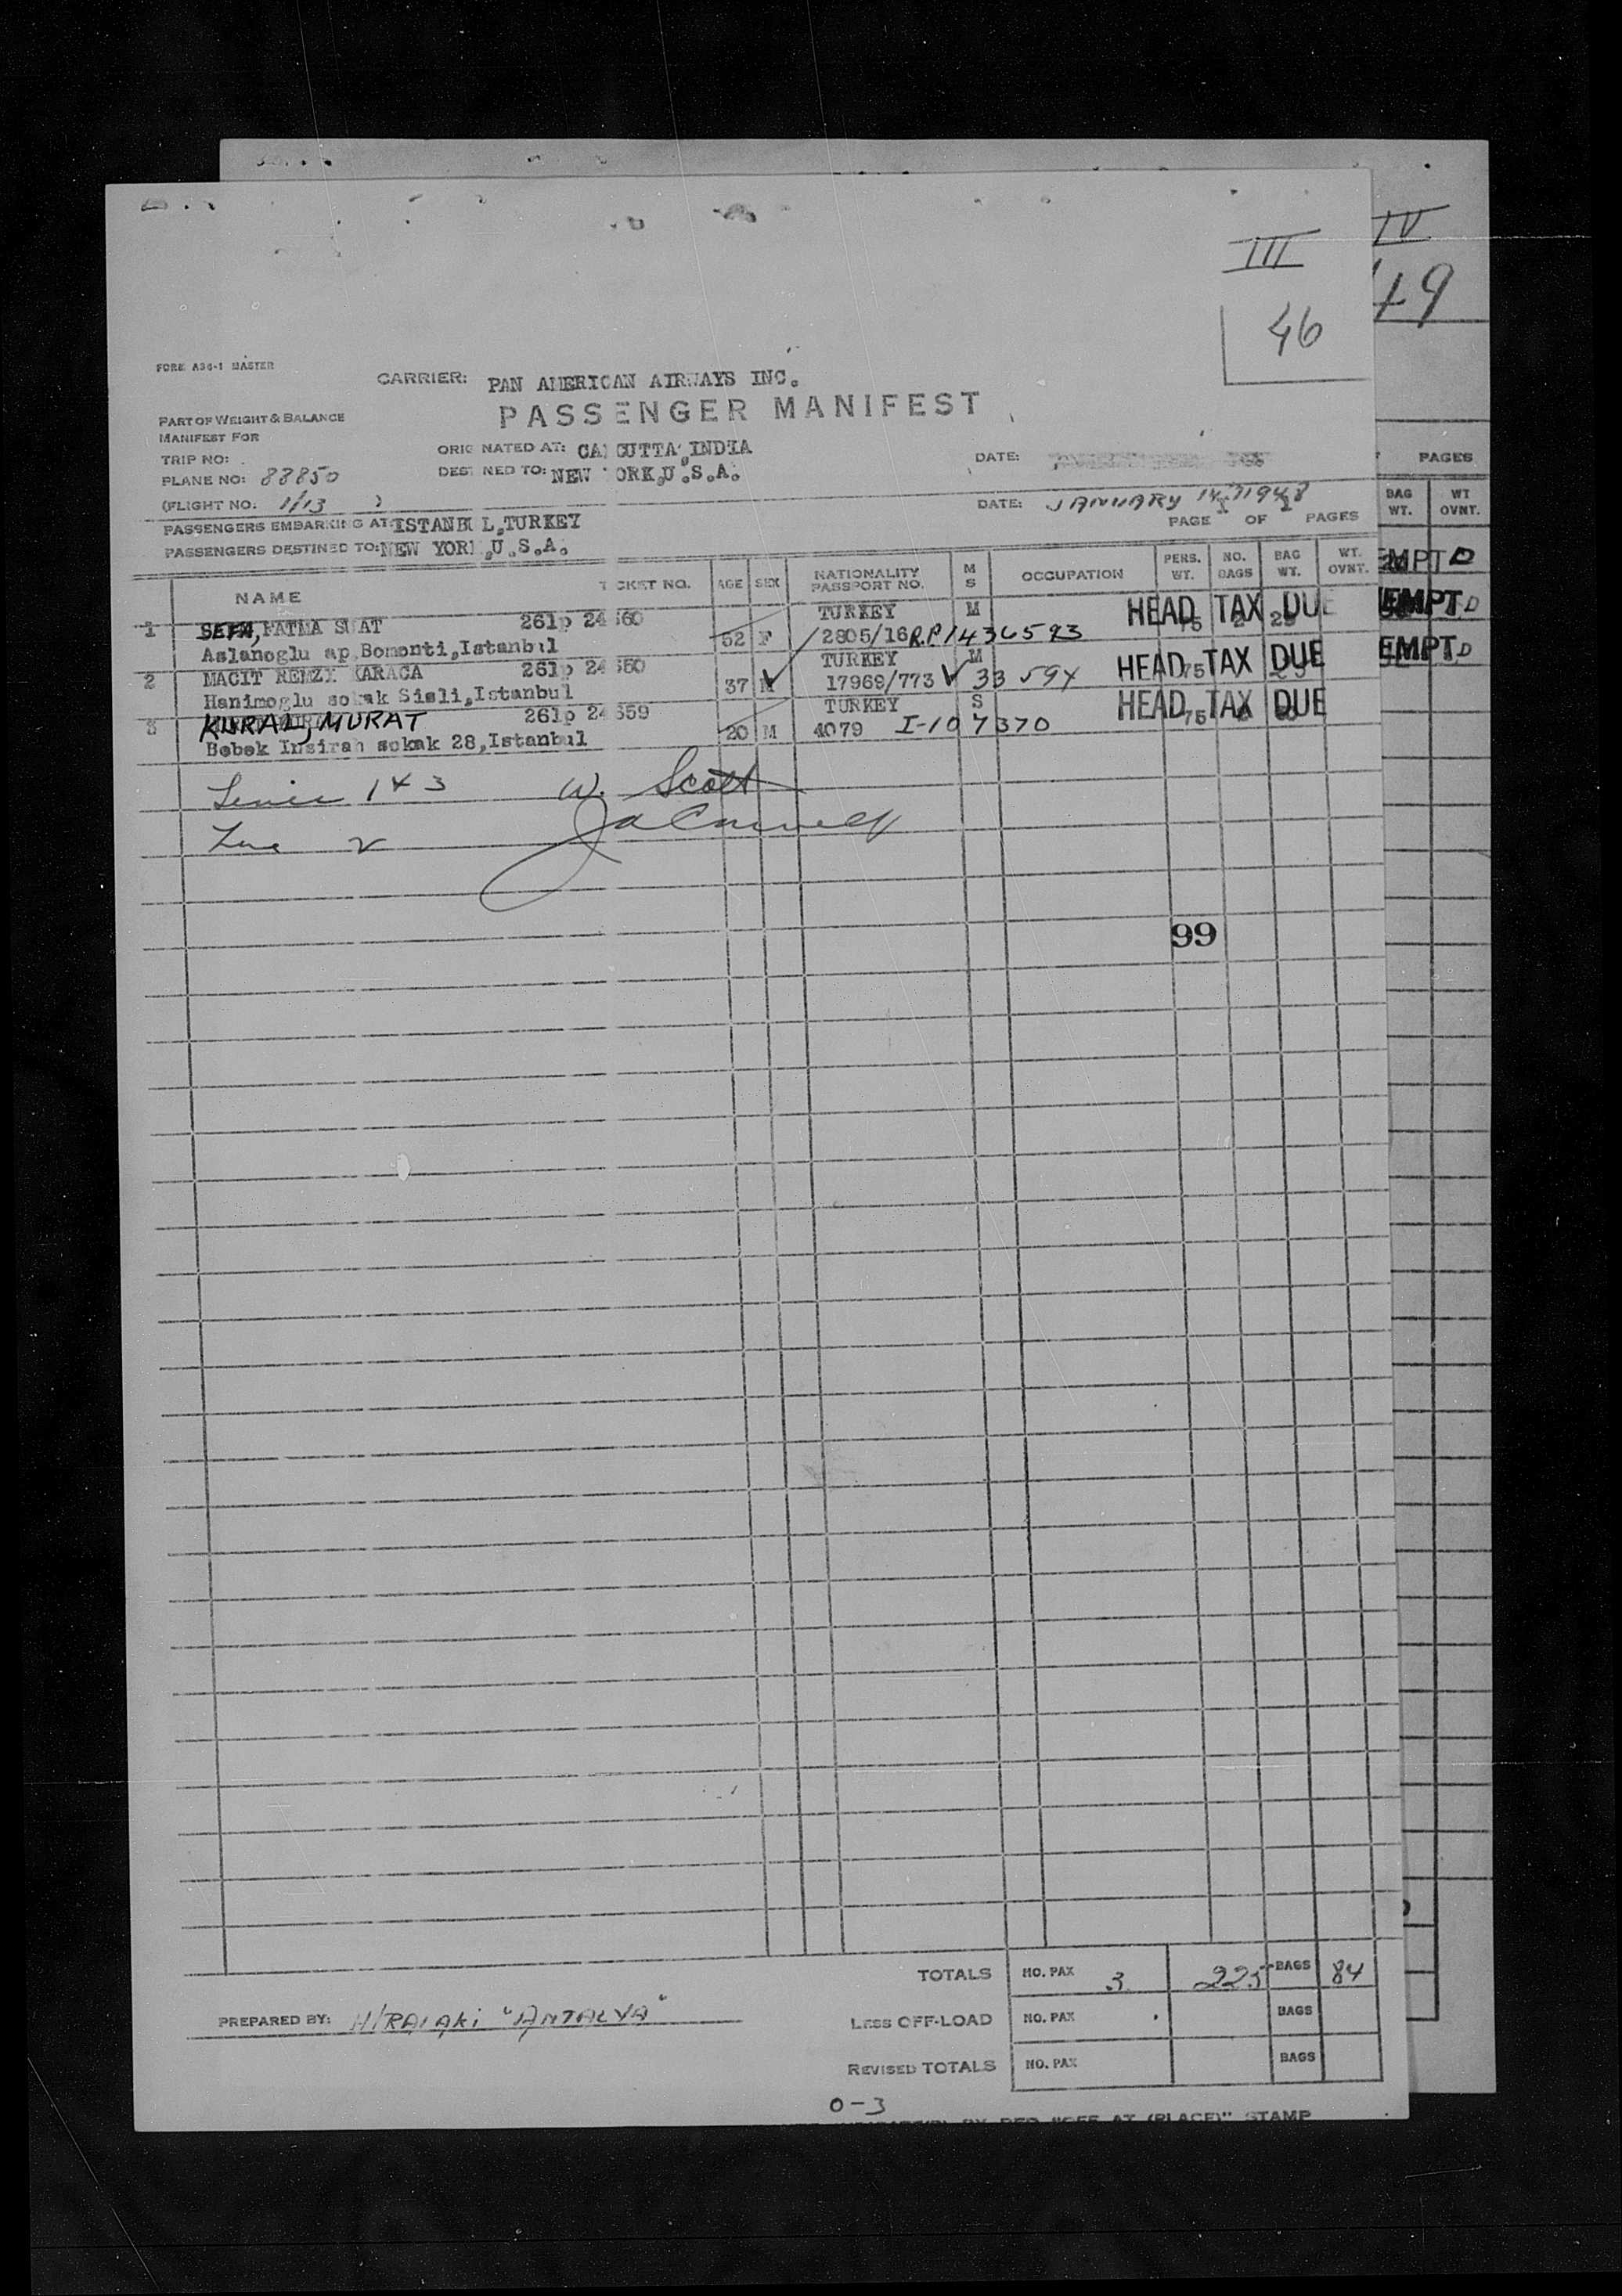 III
IV
46
49
FORM A34-1 MASTER
CARRIER: PAN AMERICAN AIRWAYS INC.
PASSENGER MANIFEST
PART OF WEIGHT & BALANCE
MANIFEST FOR
TRIP NO:
PLANE NO: 88850
(FLIGHT NO: 1/13 )
ORIGINATED AT: CALCUTTA, INDIA
DESTINED TO: NEW YORK, U.S.A.
DATE:
DATE: JANUARY 14, 1948
PAGE 1 OF 1 PAGES
PASSENGERS EMBARKING AT: ISTANBUL, TURKEY
PASSENGERS DESTINED TO: NEW YORK, U.S.A.
NAME TICKET NO. AGE SEX NATIONALITY PASSPORT NO. M S OCCUPATION PERS. WT. NO. BAGS BAG WT. WT. OVNT.
1 SEFA, FATMA SUAT 261p 24660 52 F TURKEY M HEAD TAX DUE
Aslanoglu ap, Bomonti, Istanbul 2805/16 R.P. 1436593 75
2 MACIT REMZI KARACA 261p 24660 37 M TURKEY M HEAD TAX DUE
Hanimoglu sokak Sisli, Istanbul 17969/773 33 594 75
3 KURAL, MURAT 261p 24659 20 M TURKEY S HEAD TAX DUE
Bebek Insirah sokak 28, Istanbul 4079 I-107370 75
1 & 3 W. Scott
99
TOTALS NO. PAX 3 225 BAGS 84
LESS OFF-LOAD NO. PAX BAGS
REVISED TOTALS NO. PAX BAGS
PREPARED BY: "ANTALYA"
0-3
AT (PLACE)" STAMP
PAGES
BAG WT. WT OVNT.
EMPT D
EMPT D
EMPT D